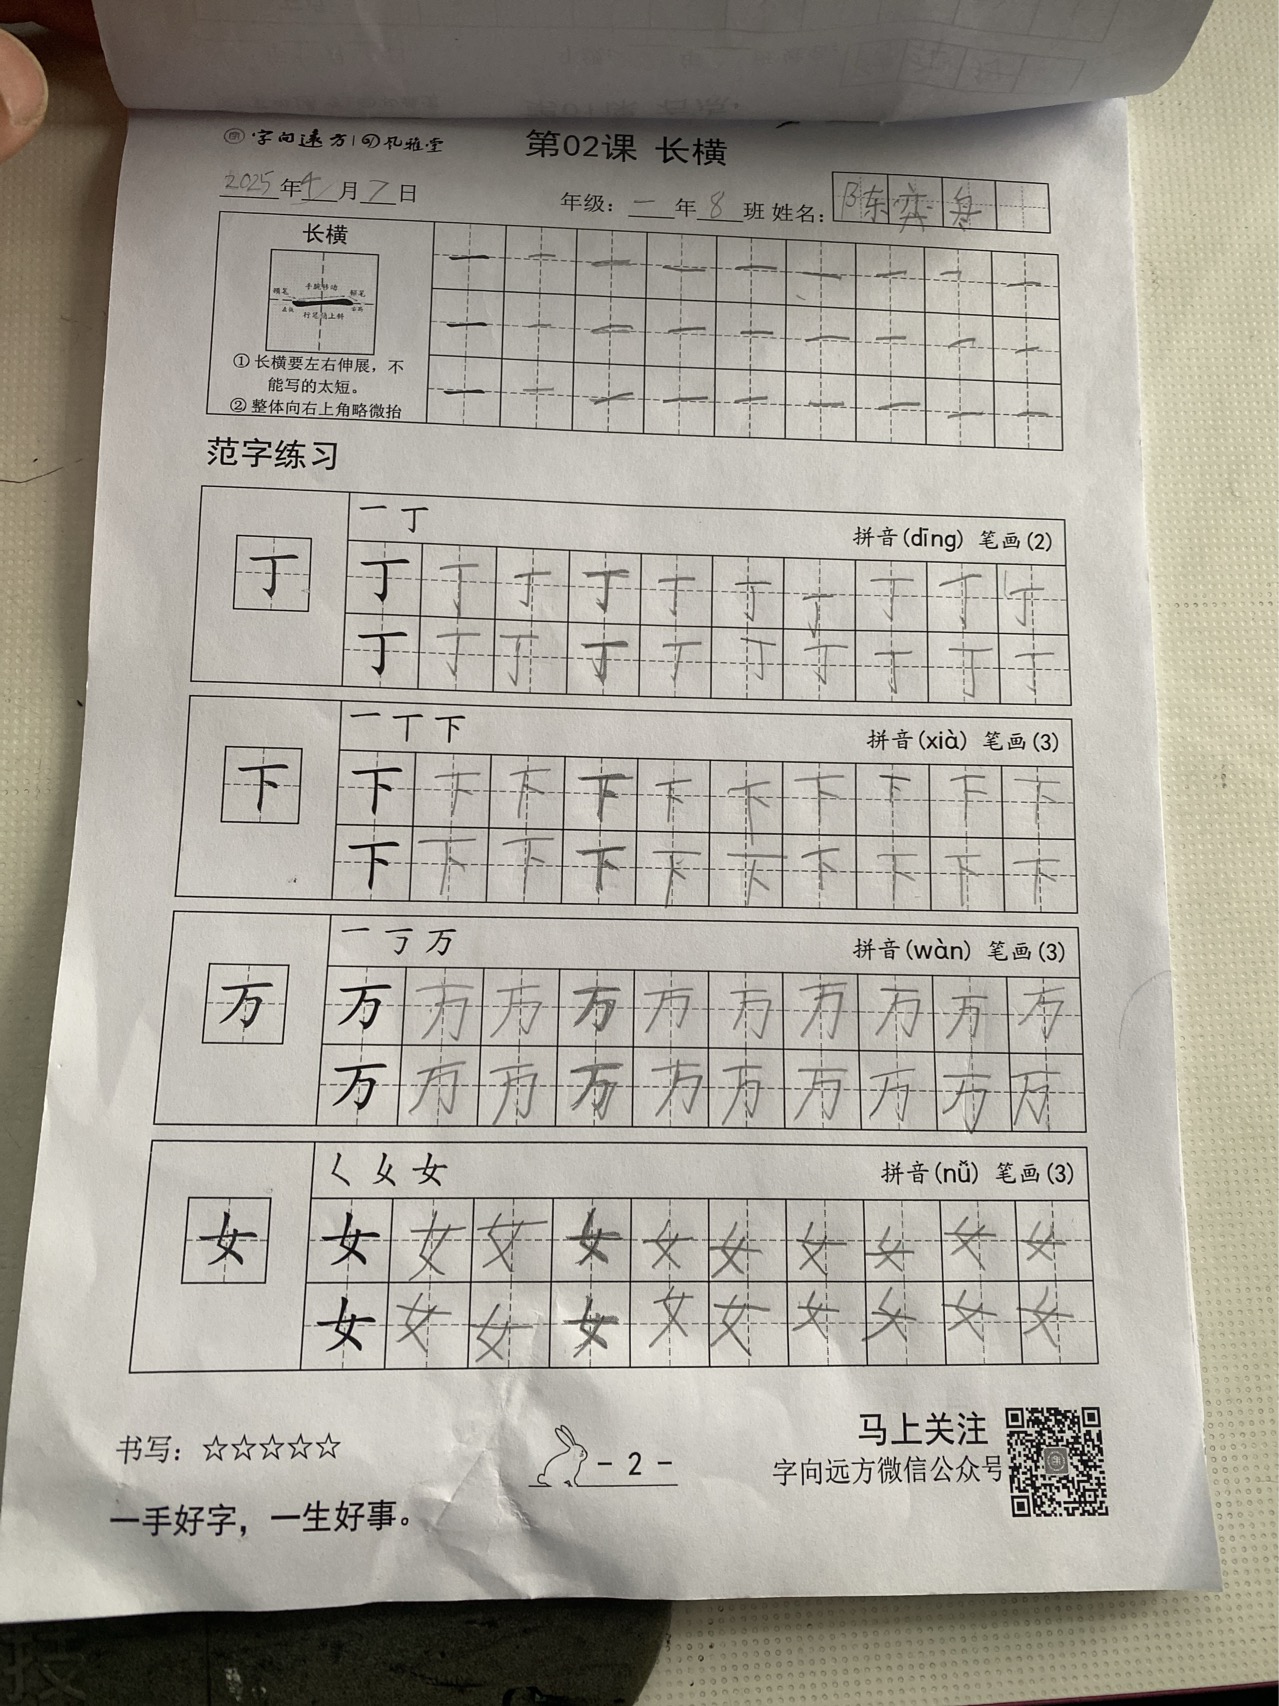 字向远方 风雅堂
第02课 长横
2025年4月7日 年级：一年8班 姓名：陈奕舟
长横
手腕转动
行笔向上斜
①长横要左右伸展，不
能写的太短。
②整体向右上角略微抬
一 一 一 一 一 一 一 一 一
一 一 一 一 一 一 一 一 一
一 一 一 一 一 一 一 一 一
范字练习
一 丁 拼音(dīng) 笔画(2)
丁
丁 丁 丁 丁 丁 丁 丁 丁 丁 丁
丁 丁 丁 丁 丁 丁 丁 丁 丁 丁
一 丅 下 拼音(xià) 笔画(3)
下
下 下 下 下 下 下 下 下 下 下
下 下 下 下 下 下 下 下 下 下
一 丂 万 拼音(wàn) 笔画(3)
万
万 万 万 万 万 万 万 万 万 万
万 万 万 万 万 万 万 万 万 万
拼音(nǚ) 笔画(3)
女
女 女 女 女 女 女 女 女 女 女
女 女 女 女 女 女 女 女 女 女
书写：☆☆☆☆☆
- 2 -
马上关注
字向远方微信公众号
一手好字，一生好事。